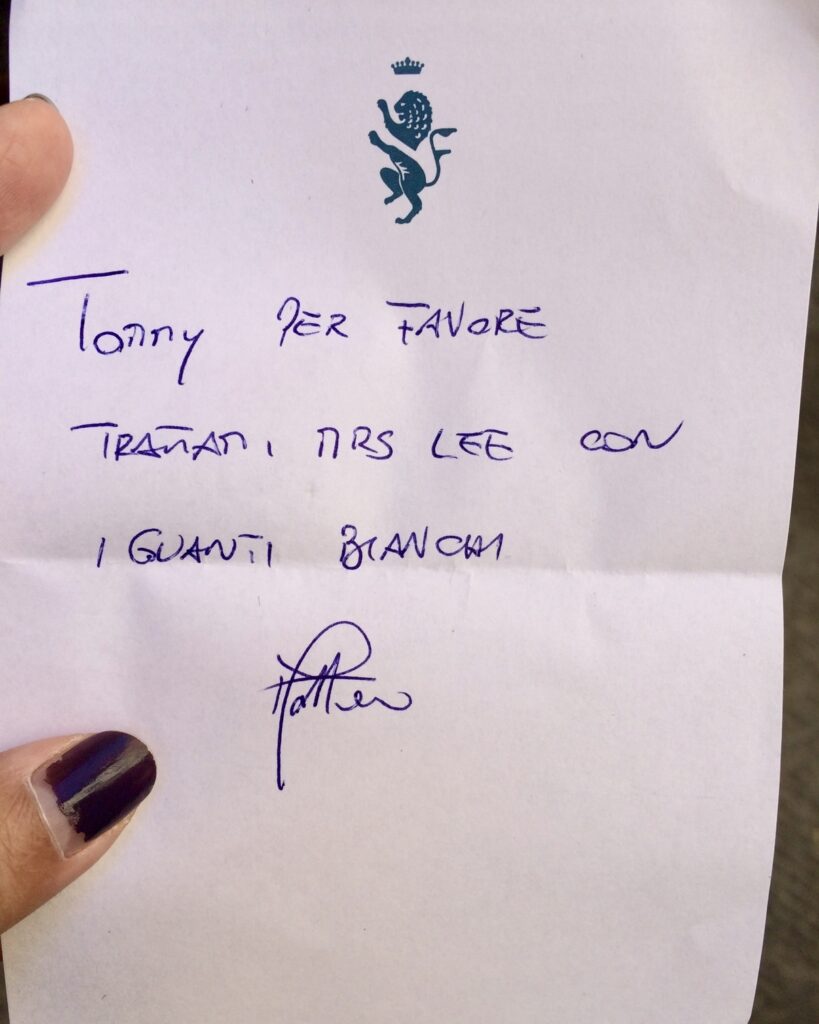 Tommy PER FAVORE
TRATTAMI MRS LEE CON
I GUANTI BIANCHI
Matteo